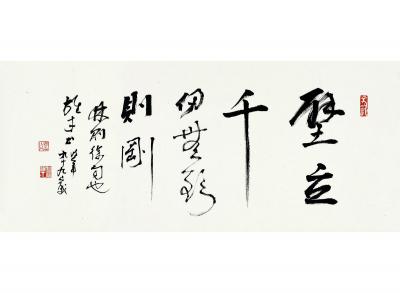 壁立
千
仞無欲
則剛
林則徐句也
九十九歲